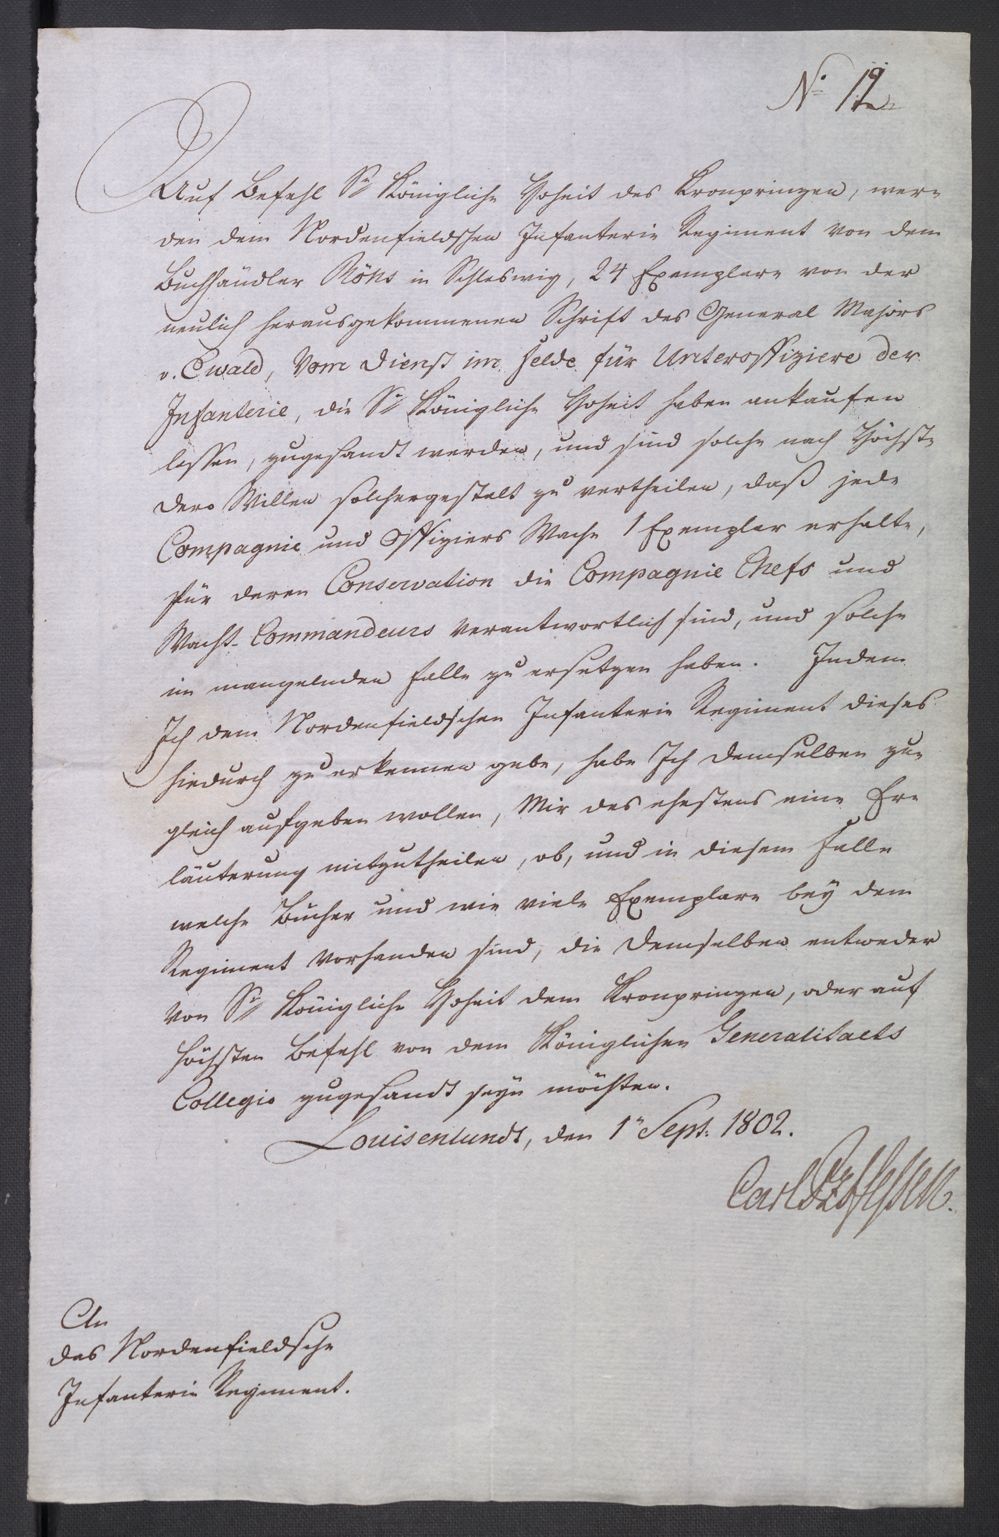 No 12
Auf Befehl Sr Königliche Hoheit des Kronprinzen, wer-
den dem Nordenfieldschen Infanterie Regiment von dem
Buchhändler Röhs in Schleswig, 24 Exemplare von der
neulich herausgekommenen Schrift des General Majors
v. Ewald, Vom Dienst im Felde für Unteroffiziere der
Infanterie, die Sr Königliche Hoheit haben ankaufen
lassen, zugesandt werden, und sind solche nach Höchst-
dero Willen solchergestalt zu vertheilen, daß jede
Compagnie und Offiziers Wache 1 Exemplar erhalte,
für deren Conservation die Compagnie Chefs und
Wacht-Commandeurs verantwortlich sind, und solche
im mangelnden Falle zu ersetzen haben. Indem
Ich dem Nordenfieldschen Infanterie Regiment dieses
hiedurch zu erkennen gebe, habe Ich demselben zu-
gleich aufgeben wollen, Mir des ehestens eine Er-
läuterung mitzutheilen, ob, und in diesem Falle
welche Bücher und wie viele Exemplare bey dem
Regiment vorhanden sind, die demselben entweder
von Sr Königliche Hoheit dem Kronprinzen, oder auf
Höchsten Befehl von dem Königlichen Generalitaets
Collegio zugesandt seyn möchten.
Louisenlundt, den 1n Sept. 1802.
Carl PzfHessen.
An
das Nordenfieldsche
Infanterie Regiment.